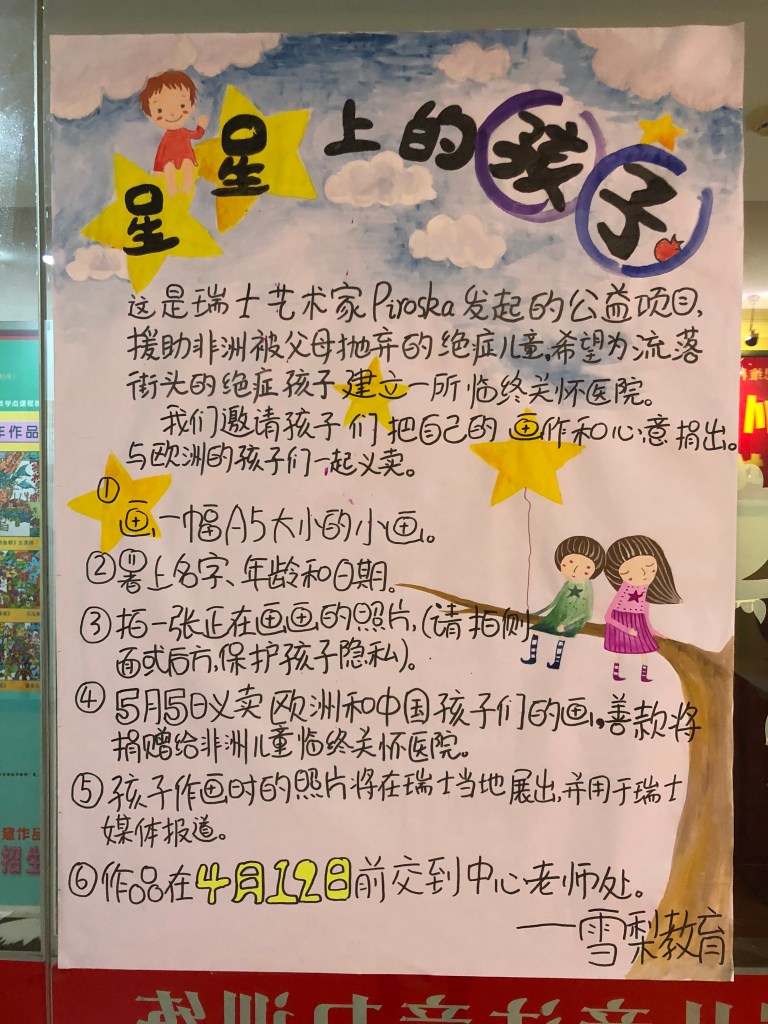 星星上的孩子
这是瑞士艺术家Piroska发起的公益项目,
援助非洲被父母抛弃的绝症儿童,希望为流落
街头的绝症孩子建立一所临终关怀医院。
我们邀请孩子们把自己的画作和心意捐出。
与欧洲的孩子们一起义卖。
①画一幅A5大小的小画。
②署上名字、年龄和日期。
③拍一张正在画画的照片,(请拍侧
面或后方,保护孩子隐私)。
④5月5日义卖欧洲和中国孩子们的画,善款将
捐赠给非洲儿童临终关怀医院。
⑤孩子作画时的照片将在瑞士当地展出,并用于瑞士
媒体报道。
⑥作品在4月12日前交到中心老师处。
—雪梨教育
年作品
意作品
招生
儿童注意力训练